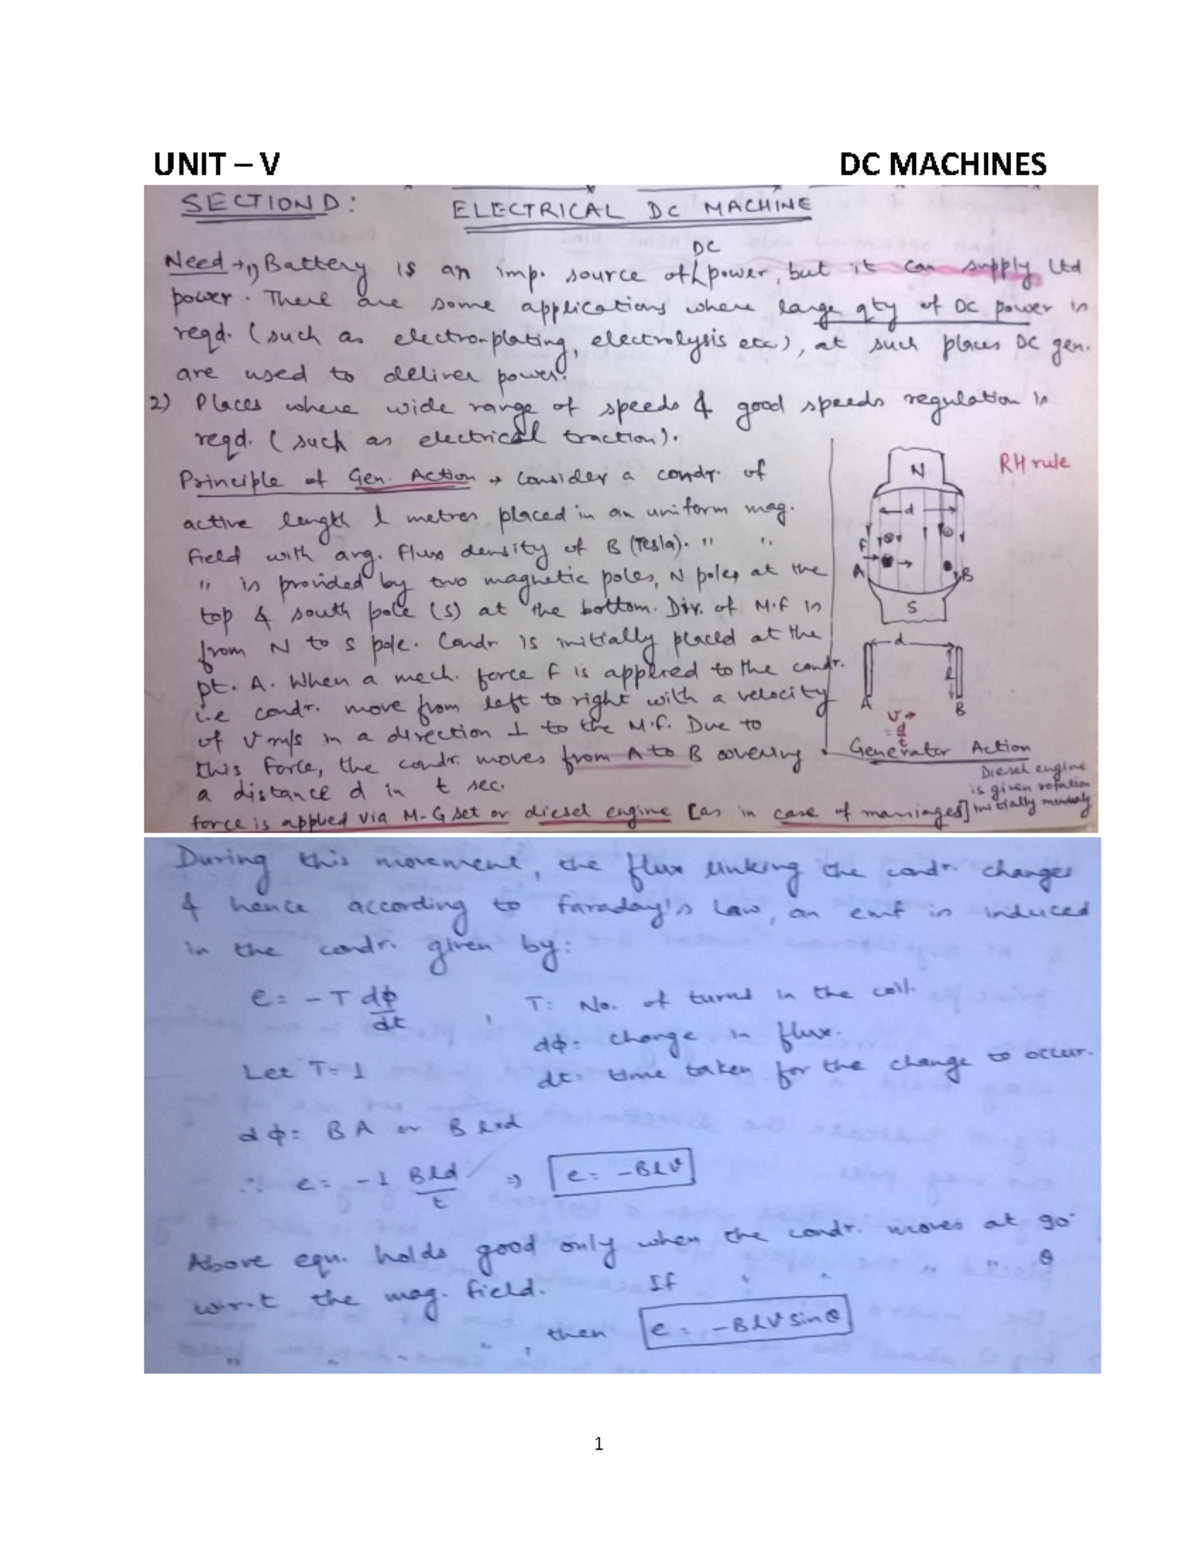 UNIT – V DC MACHINES
SECTION D: ELECTRICAL DC MACHINE
DC
Need → 1) Battery is an imp. source of power, but it can supply Ltd
power. There are some applications where large qty of DC power is
reqd. (such as electro-plating, electrolysis etc), at such places DC gen.
are used to deliver power.
2) Places where wide range of speeds & good speeds regulation is
reqd. (such as electrical traction).
Principle of Gen. Action → Consider a condr. of
active length l metres placed in an uniform mag.
field with avg. flux density of B (Tesla). " "
" is provided by two magnetic poles, N poles at the
top & south pole (S) at the bottom. Dir. of M.F is
from N to S pole. Condr is initially placed at the
pt. A. When a mech. force F is applied to the condr.
i.e condr. move from left to right with a velocity
of v m/s in a direction ⊥ to the M.F. Due to
this force, the condr. moves from A to B covering
a distance d in t sec.
force is applied via M-G set or diesel engine [as in case of marriages]
RH rule
N
d
F
A B
S
d
l
A B
v →
= d/t
Generator Action
Diesel engine
is given rotation
initially manualy
During this movement, the flux linking the condr. changes
& hence according to Faraday's Law, an emf is induced
in the condr. given by:
e = -T dϕ/dt , T: No. of turns in the coil.
dϕ = change in flux.
Let T=1 dt = time taken for the change to occur.
dϕ = BA or B l×d
∴ e = -1 Bld/t ⇒ e = -Blv
Above eqn. holds good only when the condr. moves at 90°
w.r.t the mag. field. If " " " " θ
" " " , then e = -Blv sinθ
1